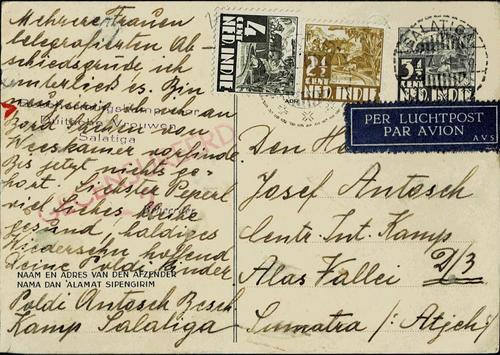 Mehrere Frauen
telegrafierten Ab-
schiedsgrüße ich
unterließ es. Bin
Bord
Duitsche Vrouwen
Salatiga
Waeskamer
Bis jetzt nichts ge-
hört. Liebster Peperl
viel liebes, bleibe
gesund, baldiges
Wiedersehn hoffend
Deine Poldi Kinder
GECENSUREERD
NAAM EN ADRES VAN DEN AFZENDER
NAMA DAN 'ALAMAT SIPENGIRIM
Poldi Antosch Besch
Kamp Salatiga
4 CENT NED. INDIE
2½ CENT NED. INDIE
3½ CENT NED. INDIE
SALATIGA
PER LUCHTPOST
PAR AVION
AVS
Den
Josef Antosch
Centr. Int. Kamp
Alas Vallei D/3
Sumatra /: Atjeh